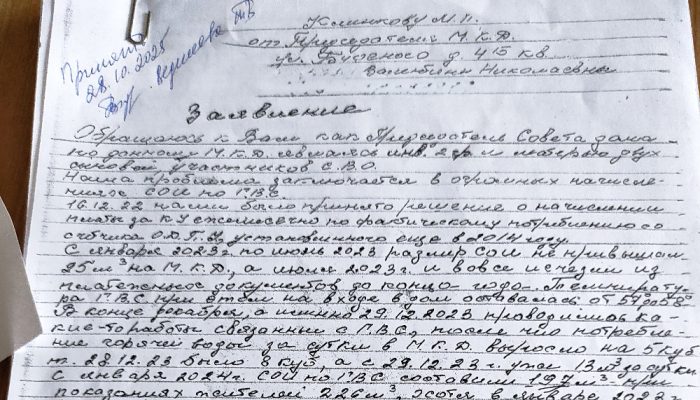 Принято
28.10.2025
Климкову М.П.
от Председателя М.К.Д.
д. 415 кв.
Николаевны
Заявление
Обращаюсь к Вам как Председатель Совета дома
по данному М.К.Д. являясь инв. 2 гр. и матерью двух
сыновей участников С.В.О.
Наша проблема заключается в огромных начисле-
ниях СОИ по Г.В.С.
16.12.22 нами было принято решение о начислении
платы за КУ ежемесячно по фактическому потреблению со
счётчика О.Д.П.У. установленного еще в 2014 году.
С января 2023г. по июль 2023 размер СОИ не привышал
25м³ на М.К.Д., а июля 2023г. и вовсе исчезли из
платежных документов до конца года. Температу-
ра Г.В.С. при этом на входе в дом оставалась от
В конце декабря, а именно 29.12.2023 проводились ка-
кие-то работы связанные с Г.В.С., после чго потребле-
ние горячей воды за сутки в М.К.Д. выросло на 5 куб
т. 28.12.23 было 8 куб, а с 29.12.23г. уже 13м³ за сутки
С января 2024г. СОИ по Г.В.С. составили 197м³ при
показаниях жителей 226м³, хотя в январе 2023г.